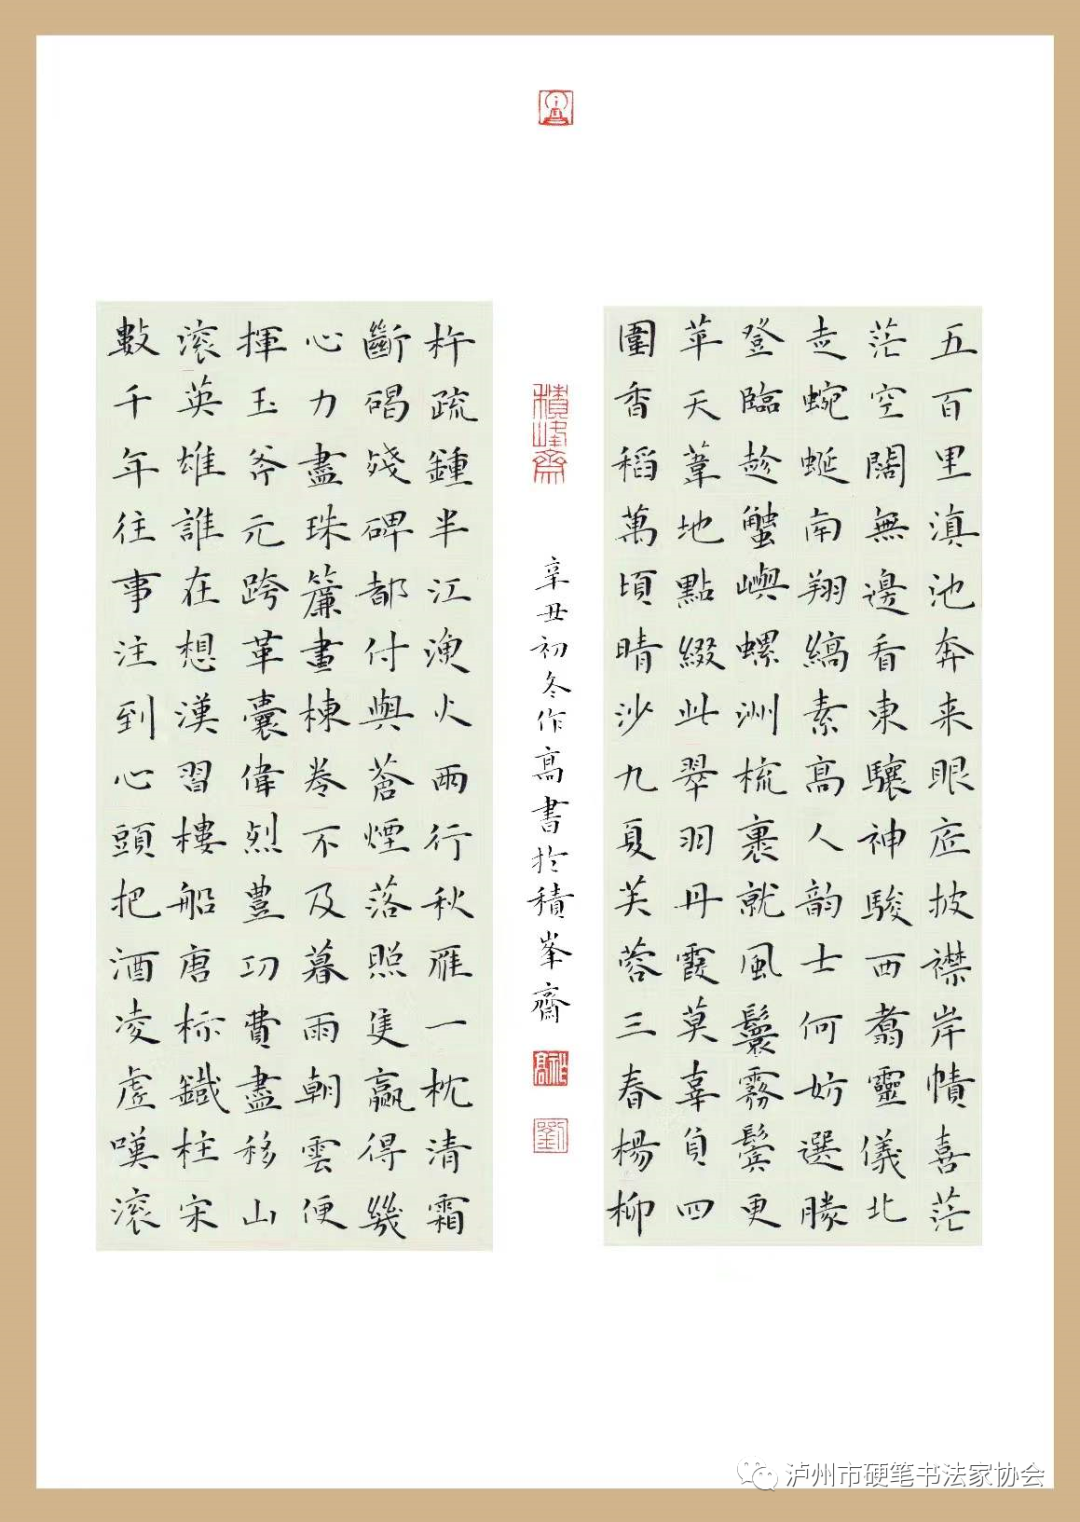 五百里滇池奔来眼底披襟岸幘喜茫
茫空闊無邊看東驤神駿西翥靈儀北
走蜿蜒南翔縞素高人韵士何妨選勝
登臨趁蟹嶼螺洲梳裹就風鬟霧鬢更
苹天葦地點綴此翠羽丹霞莫辜負四
圍香稻萬頃晴沙九夏芙蓉三春楊柳
數千年往事注到心頭把酒凌虛嘆滾
滚英雄誰在想漢習樓船唐标鐵柱宋
揮玉斧元跨革囊偉烈豐功費盡移山
心力盡珠簾畫棟卷不及暮雨朝雲便
斷碣殘碑都付與蒼煙落照隻贏得幾
杵疏鍾半江漁火兩行秋雁一枕清霜
積峰齋
辛丑初冬作高書於積峯齋
劉
泸州市硬笔书法家协会